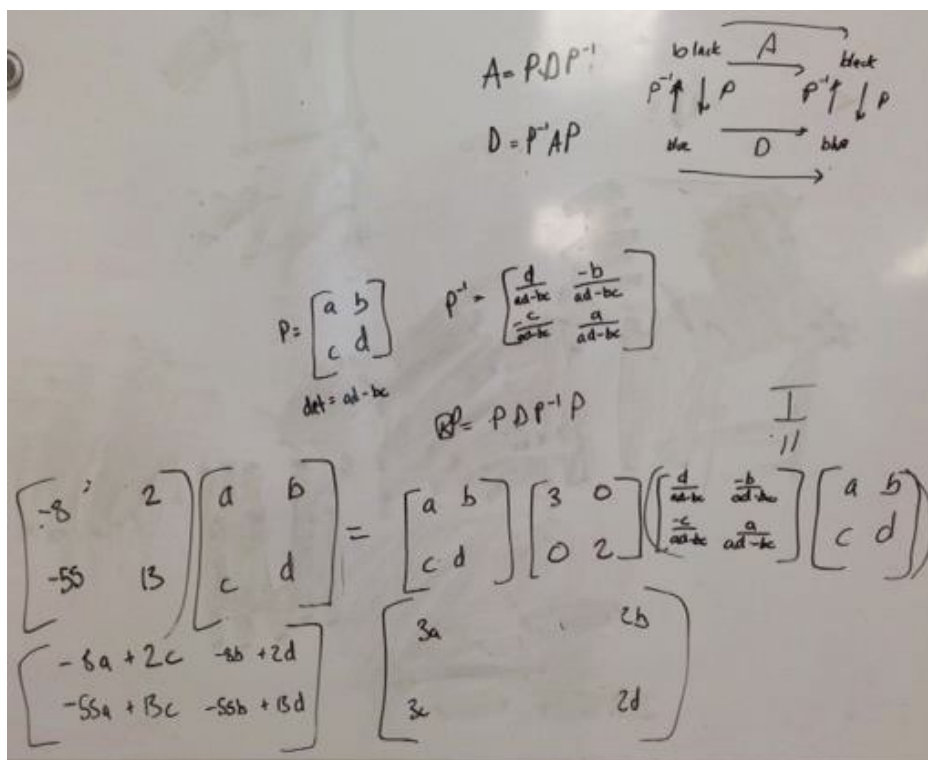 A = PDP⁻¹
black A black
P⁻¹ P P⁻¹ P
D = P⁻¹AP
blue D blue
P = [a b
c d]
P⁻¹ = [d/ad-bc -b/ad-bc
-c/ad-bc a/ad-bc]
det = ad-bc
P = P D P⁻¹ P
I
=
[-8 2
-55 13] [a b
c d] = [a b
c d] [3 0
0 2] ([d/ad-bc -b/ad-bc
-c/ad-bc a/ad-bc] [a b
c d])
[-8a + 2c -8b + 2d
-55a + 13c -55b + 13d]
[3a 2b
3c 2d]